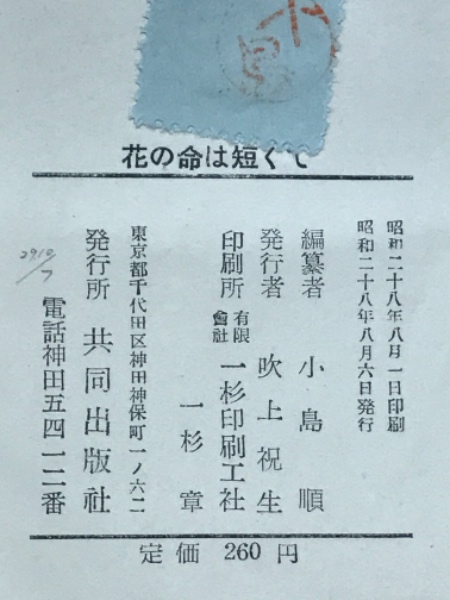 花の命は短くて
昭和二十八年八月一日印刷
昭和二十八年八月六日発行
編纂者 小島順
発行者 吹上祝生
印刷所 有限會社 一杉印刷工社
一杉章
東京都千代田区神田神保町一ノ六二
発行所 共同出版社
電話神田五四一二番
定価 260 円